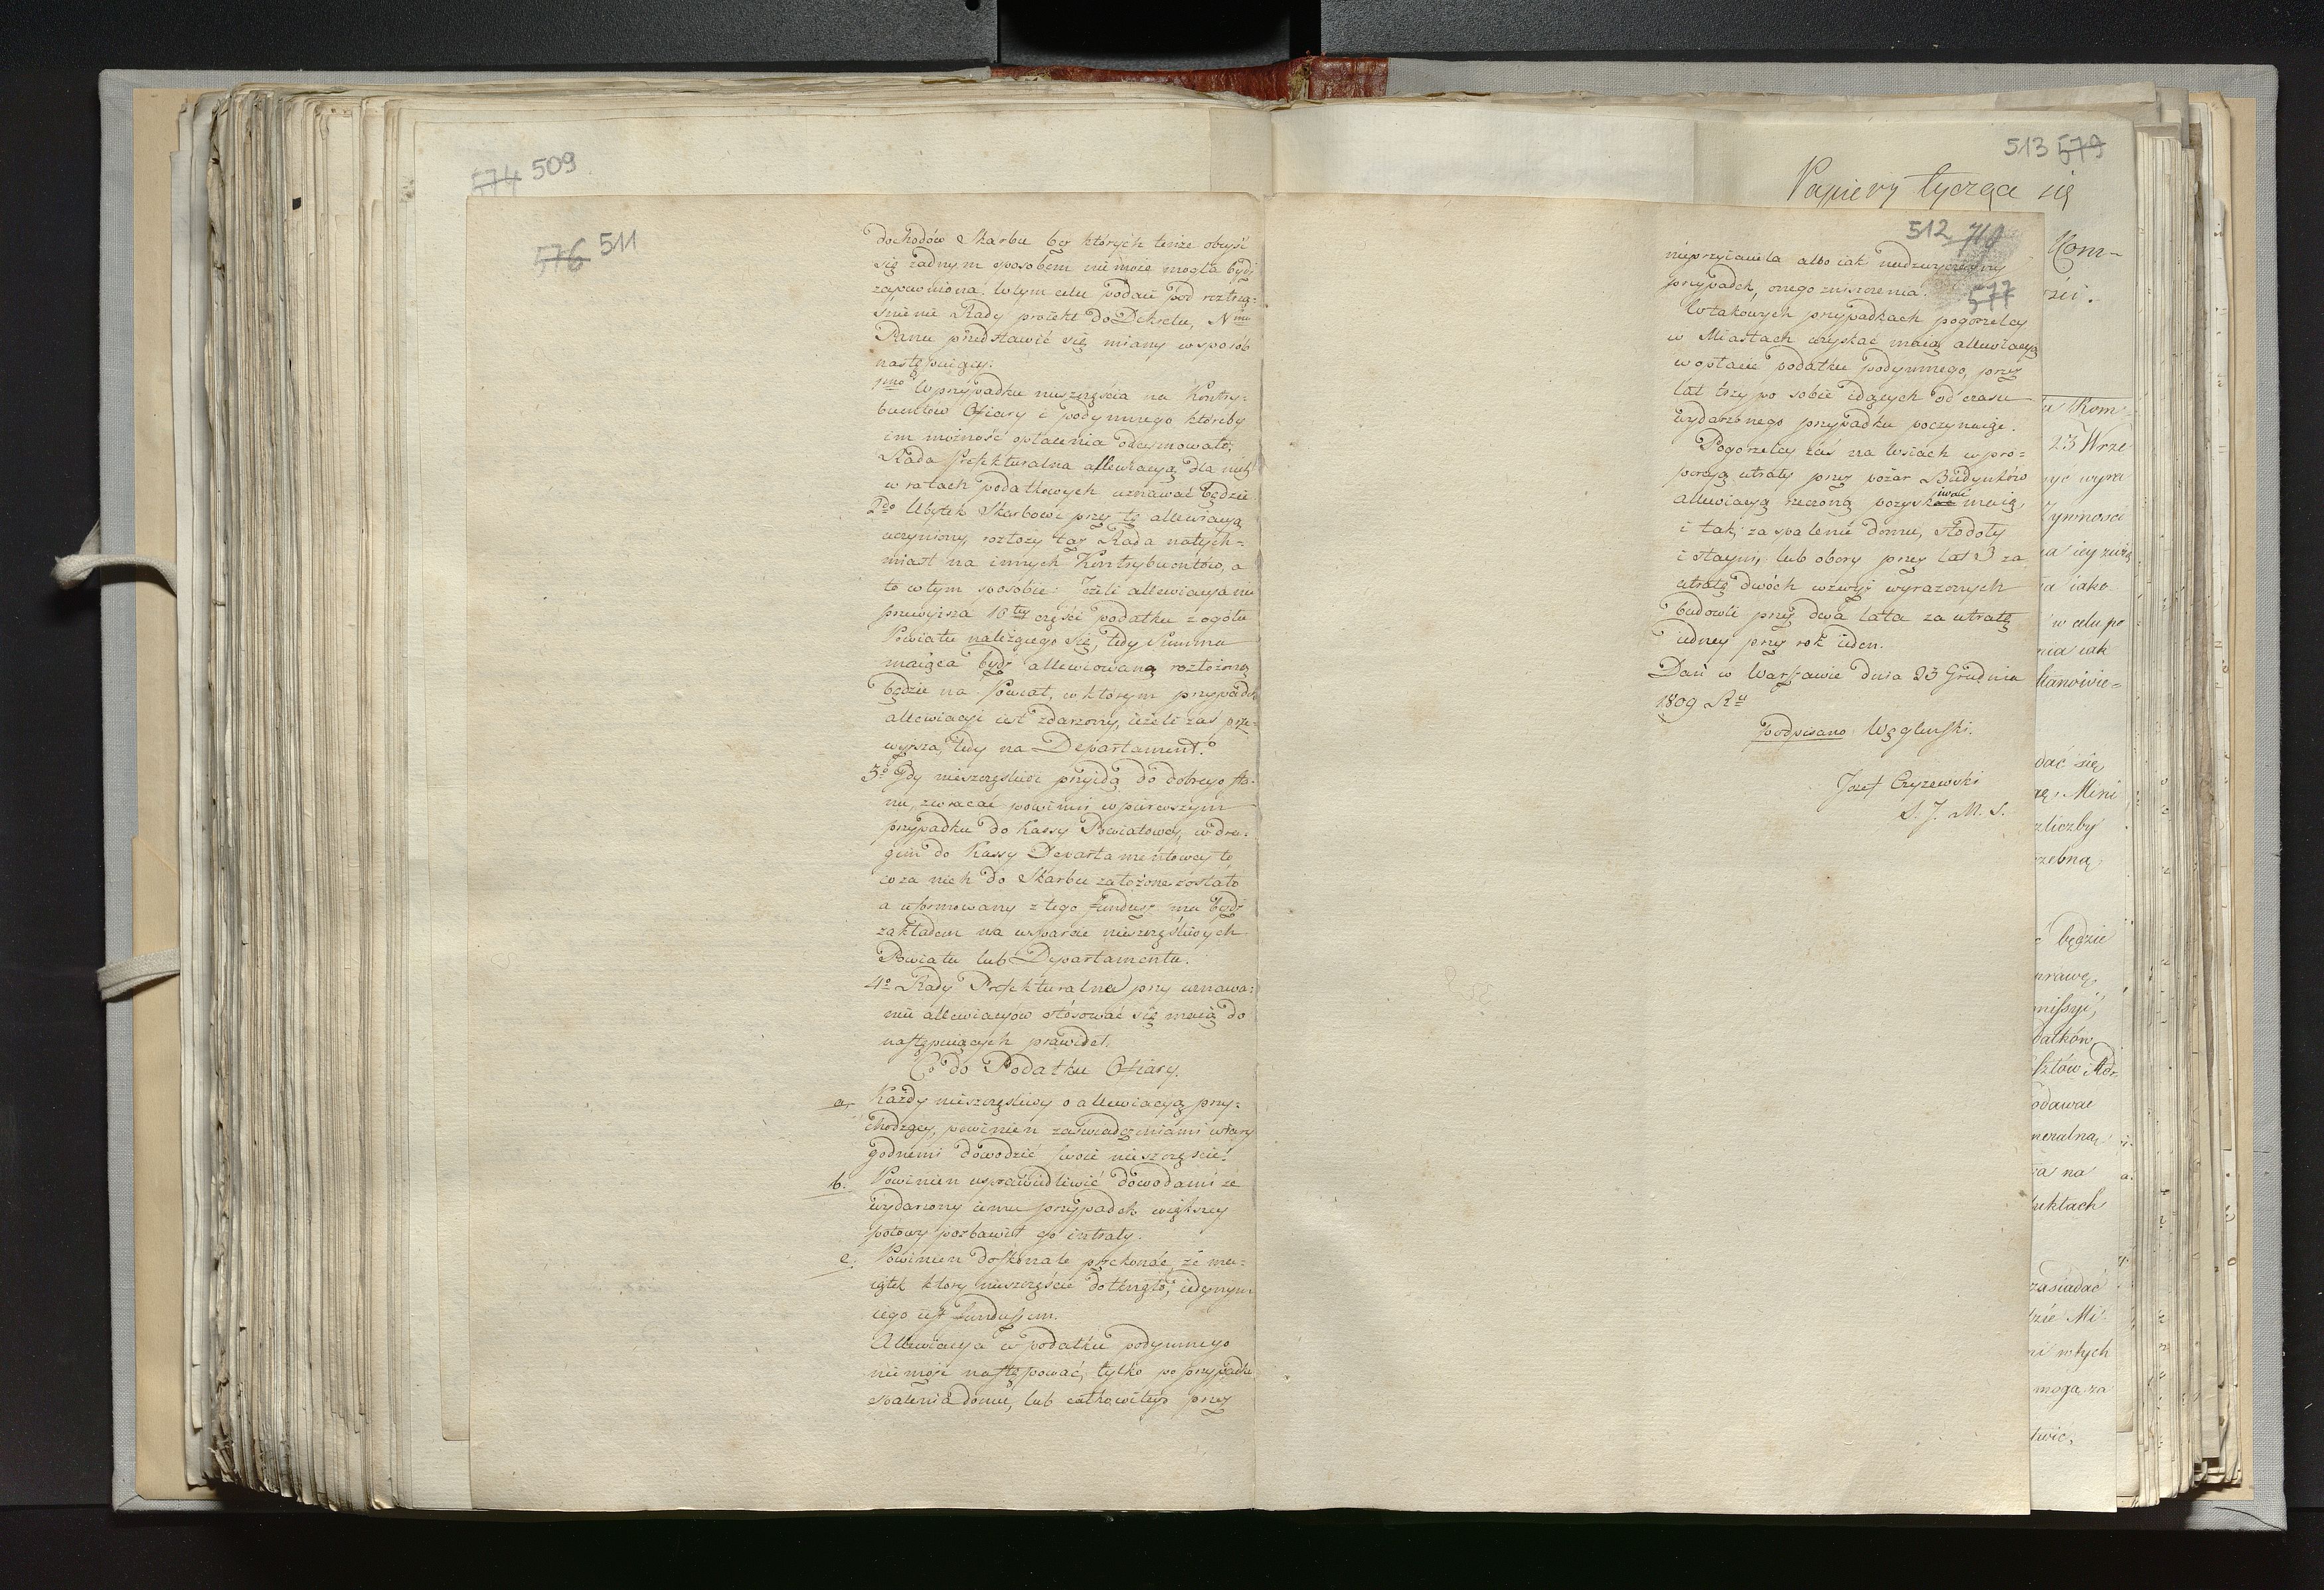 574 509
576 511
dochodów Skarbu bez których tenże obeyść
się żadnym sposobem nie może mogła bydź
zapewniona. W tym celu podaię pod roztrzą-
śnienie Rady proiekt do Dekretu, Nmu
Panu przedstawić się miany w sposób
następuiący.
1mo W przypadku nieszczęścia na Kontry-
buentów Ofiary i podymnego któreby
im możność opłacenia odeymowało,
Rada Prefekturalna allewiacyą dla nich
w ratach podatkowych uznawać będzie
2do Ubytek Skarbowi przez tę allewiacyą
uczyniony, rozłoży taż Rada natych-
miast na innych Kontrybuentów, a
to w tym sposobie: Jeżeli allewiacya nie
przewyższa 10tey części podatku z ogółu
Powiatu należącego się, tedy Summa
maiąca bydź allewiowaną rozłożoną
będzie na Powiat, w którym przypadek
allewiacyi iest zdarzony, ieżeli zaś prze-
wyższa, tedy na Departament.
3o Gdy nieszczęśliwi przyidą do dobrego sta-
nu, zwracać powinni w pierwszym
przypadku do Kassy Powiatowey, w dru-
gim do Kassy Departamentowey to
co za nich do Skarbu założone zostało
a uformowany z tego fundusz ma bydź
zakładem na wsparcie nieszczęśliwych
Powiatu lub Departamentu.
4o Rady Prefekturalne przy uznawa-
niu allewiacyów stósować się maią do
następuiących prawideł.
Co do Podatku Ofiary.
a. Każdy nieszczęśliwy o allewiacyą przy-
chodzący, powinien zaświadczeniami wiary
godnemi dowodzić swoie nieszczęście.
b. Powinien usprawiedliwić dowodami że
wydarzony iemu przypadek większey
połowy pozbawił go intraty.
c. Powinien doskonale przekonać, że ma-
iątek który nieszczęście dotknęło, iedynym
iego iest funduszem.
Allewiacya w podatku podymnego
nie może następować, tylko po przypadku
spalenia domu, lub całkowitego przez
513 579
Papiery tyczące się
512 710
577
nieprzyiaciela albo iak nadzwyczayny
przypadek, onego zniszczenia.
W takowych przypadkach pogorzelcy
w Miastach uzyskać maią allewiacyą
w opłacie podatku podymnego, przez
lat trzy po sobie idących od czasu
wydarzonego przypadku poczynaiąc.
Pogorzelcy zaś na wsiach w pro-
porcyą utraty przez pożar Budynków
allewiacyą rzeczoną pozyskiwać maią,
i tak; za spalenie domu, stodoły
i stayni, lub obory przez lat 3 za
utratę dwóch wzwyż wyrażonych
budowli przez dwa lata za utratę
iedney przez rok ieden.
Dań w Warszawie dnia 23 Grudnia
1809 Ru
Podpisano Węgleński.
Jozef Czyżewski
S. J. M. S.
Kom-
Kom-
23 Wrze
iako
w celu po
iak
Stanowie-
dać się
Mini
będzie
na
zasiadać
Mi-
mogą za